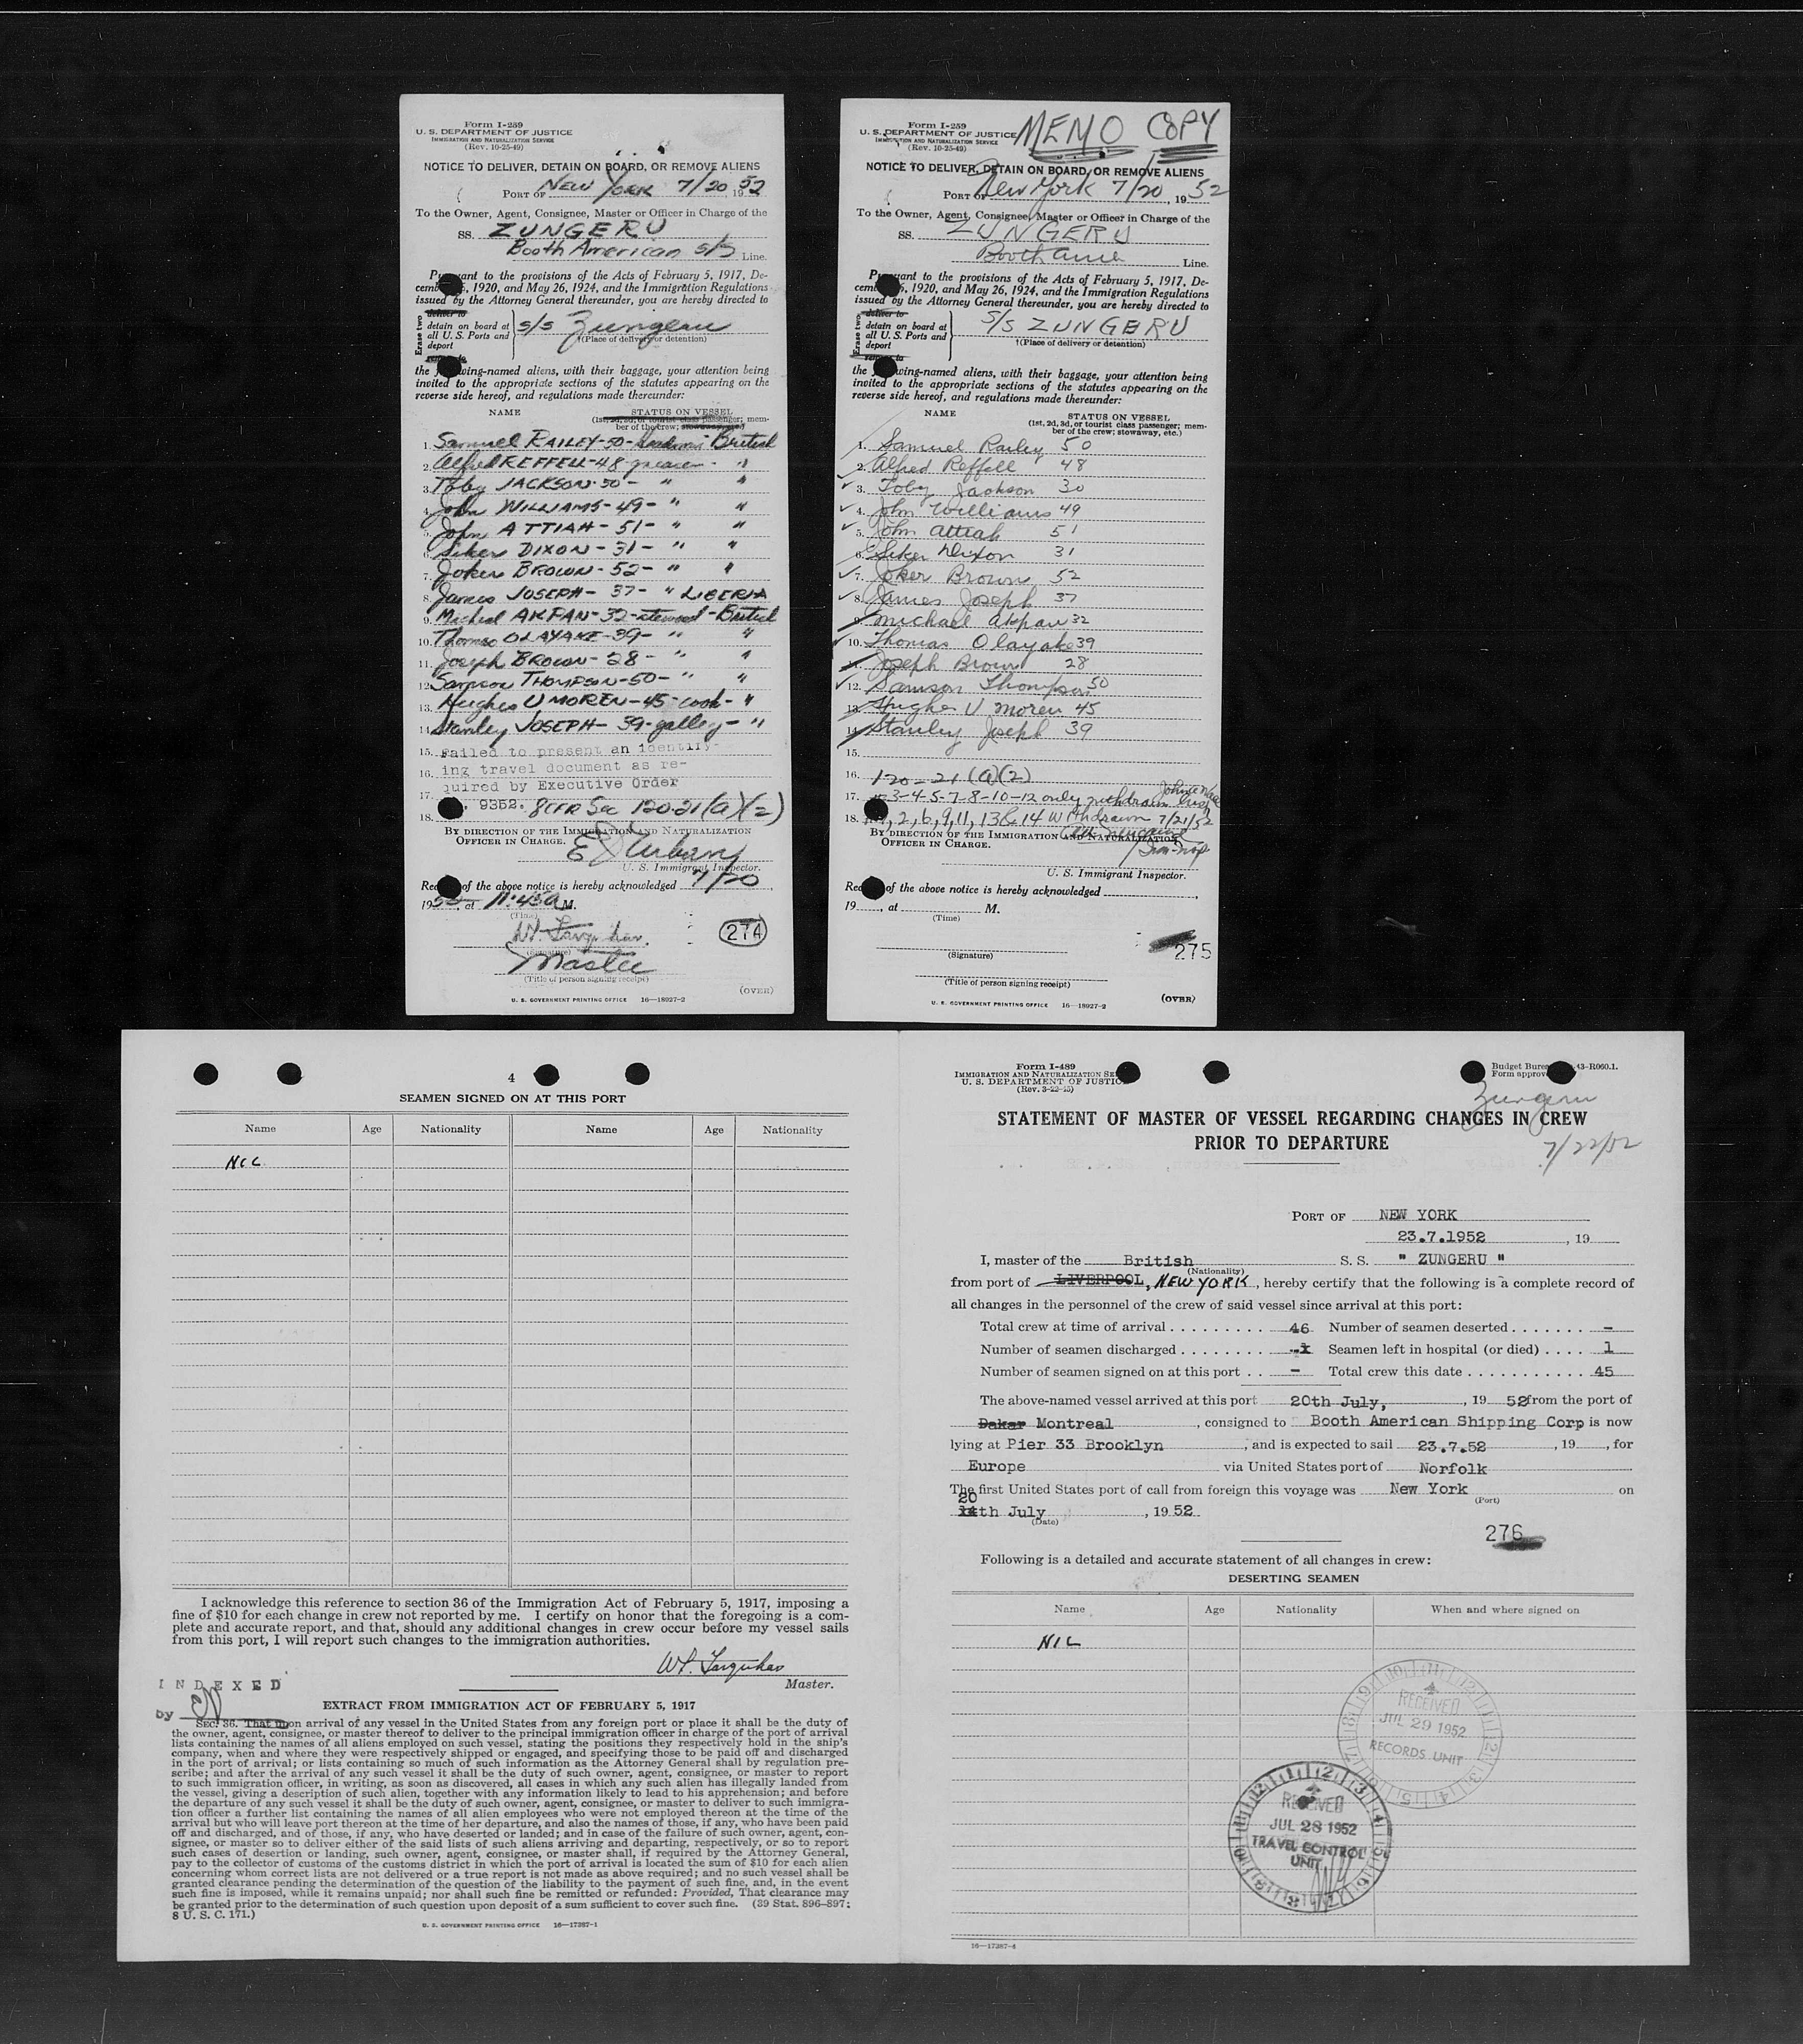 Form I-259
U. S. DEPARTMENT OF JUSTICE
IMMIGRATION AND NATURALIZATION SERVICE
(Rev. 10-25-49)
NOTICE TO DELIVER, DETAIN ON BOARD, OR REMOVE ALIENS
PORT OF NEW YORK 7/20, 1952
To the Owner, Agent, Consignee, Master or Officer in Charge of the
SS. ZUNGERU
Booth American S/S Line.
Pursuant to the provisions of the Acts of February 5, 1917, De-
cember 26, 1920, and May 26, 1924, and the Immigration Regulations
issued by the Attorney General thereunder, you are hereby directed to
Erase two
deliver to
detain on board at
all U. S. Ports and
deport
remove to
S/S Zungeru
†(Place of delivery or detention)
the following-named aliens, with their baggage, your attention being
invited to the appropriate sections of the statutes appearing on the
reverse side hereof, and regulations made thereunder:
NAME STATUS ON VESSEL
(1st, 2d, 3d, or tourist class passenger; mem-
ber of the crew; stowaway, etc.)
1. Samuel RAILEY-50- British
2. Alfred REFFELL-48 greaser - "
3. Toby JACKSON-30- " "
4. John WILLIAMS-49- " "
5. John ATTIAH-51- " "
6. Seker DIXON-31- " "
7. Joker BROWN-52- " "
8. James JOSEPH-37- " LIBERIA
9. Michael AKPAN-32-steward-British
10. Thomas OLAYAKE-39- " "
11. Joseph BROWN-28- " "
12. Samson THOMPSON-50- " "
13. Hughes UMOREN-45-cook- "
14. Stanley JOSEPH-39-galley- "
15. Failed to present an identify-
16. ing travel document as re-
quired by Executive Order
17. 9352. 8CFR Sec 120.21(a)(2)
18.
BY DIRECTION OF THE IMMIGRATION AND NATURALIZATION
OFFICER IN CHARGE.
U. S. Immigrant Inspector.
Receipt of the above notice is hereby acknowledged 7/20,
1952, at 11:45 A M.
(Time)
W. P. Farquhar
(Signature)
Master
(Title of person signing receipt)
274
(OVER)
U. S. GOVERNMENT PRINTING OFFICE 16—18927-2
MEMO COPY
Form I-259
U. S. DEPARTMENT OF JUSTICE
IMMIGRATION AND NATURALIZATION SERVICE
(Rev. 10-25-49)
NOTICE TO DELIVER, DETAIN ON BOARD, OR REMOVE ALIENS
PORT OF New York 7/20, 1952
To the Owner, Agent, Consignee, Master or Officer in Charge of the
SS. ZUNGERU
Booth Amer Line.
Pursuant to the provisions of the Acts of February 5, 1917, De-
cember 26, 1920, and May 26, 1924, and the Immigration Regulations
issued by the Attorney General thereunder, you are hereby directed to
Erase two
deliver to
detain on board at
all U. S. Ports and
deport
remove to
S/S ZUNGERU
†(Place of delivery or detention)
the following-named aliens, with their baggage, your attention being
invited to the appropriate sections of the statutes appearing on the
reverse side hereof, and regulations made thereunder:
NAME STATUS ON VESSEL
(1st, 2d, 3d, or tourist class passenger; mem-
ber of the crew; stowaway, etc.)
1. Samuel Railey 50
2. Alfred Reffell 48
3. Toby Jackson 30
4. John Williams 49
5. John Attiah 51
6. Seker Dixon 31
7. Joker Brown 52
8. James Joseph 37
9. Michael Akpan 32
10. Thomas Olayake 39
11. Joseph Brown 28
12. Samson Thompson 50
13. Hughes Umoren 45
14. Stanley Joseph 39
15.
16. 120-21(a)(2)
17. 3-4-5-7-8-10-12 only withdrawn
18. 1, 2, 6, 9, 11, 13 & 14 Withdrawn 7/21/52
BY DIRECTION OF THE IMMIGRATION AND NATURALIZATION
OFFICER IN CHARGE.
U. S. Immigrant Inspector.
Receipt of the above notice is hereby acknowledged
19, at M.
(Time)
275
(Signature)
(Title of person signing receipt)
U. S. GOVERNMENT PRINTING OFFICE 16—18927-2
(OVER)
4
SEAMEN SIGNED ON AT THIS PORT
Name Age Nationality Name Age Nationality
NIL
I acknowledge this reference to section 36 of the Immigration Act of February 5, 1917, imposing a
fine of $10 for each change in crew not reported by me. I certify on honor that the foregoing is a com-
plete and accurate report, and that, should any additional changes in crew occur before my vessel sails
from this port, I will report such changes to the immigration authorities.
W. P. Farquhar
Master.
INDEXED
by EN
EXTRACT FROM IMMIGRATION ACT OF FEBRUARY 5, 1917
SEC. 36. That upon arrival of any vessel in the United States from any foreign port or place it shall be the duty of
the owner, agent, consignee, or master thereof to deliver to the principal immigration officer in charge of the port of arrival
lists containing the names of all aliens employed on such vessel, stating the positions they respectively hold in the ship's
company, when and where they were respectively shipped or engaged, and specifying those to be paid off and discharged
in the port of arrival; or lists containing so much of such information as the Attorney General shall by regulation pre-
scribe; and after the arrival of any such vessel it shall be the duty of such owner, agent, consignee, or master to report
to such immigration officer, in writing, as soon as discovered, all cases in which any such alien has illegally landed from
the vessel, giving a description of such alien, together with any information likely to lead to his apprehension; and before
the departure of any such vessel it shall be the duty of such owner, agent, consignee, or master to deliver to such immigra-
tion officer a further list containing the names of all alien employees who were not employed thereon at the time of the
arrival but who will leave port thereon at the time of her departure, and also the names of those, if any, who have been paid
off and discharged, and of those, if any, who have deserted or landed; and in case of the failure of such owner, agent, con-
signee, or master so to deliver either of the said lists of such aliens arriving and departing, respectively, or so to report
such cases of desertion or landing, such owner, agent, consignee, or master shall, if required by the Attorney General,
pay to the collector of customs of the customs district in which the port of arrival is located the sum of $10 for each alien
concerning whom correct lists are not delivered or a true report is not made as above required; and no such vessel shall be
granted clearance pending the determination of the question of the liability to the payment of such fine, and, in the event
such fine is imposed, while it remains unpaid; nor shall such fine be remitted or refunded: Provided, That clearance may
be granted prior to the determination of such question upon deposit of a sum sufficient to cover such fine. (39 Stat. 896–897;
8 U. S. C. 171.)
U. S. GOVERNMENT PRINTING OFFICE 16—17387-1
Form I-489
IMMIGRATION AND NATURALIZATION SE
U. S. DEPARTMENT OF JUSTICE
(Rev. 3-22-45)
Budget Bureau 43-R060.1.
Form approved
Zungeru
STATEMENT OF MASTER OF VESSEL REGARDING CHANGES IN CREW
PRIOR TO DEPARTURE
7/22/52
PORT OF NEW YORK
23.7.1952, 19
I, master of the British S. S. " ZUNGERU "
(Nationality)
from port of LIVERPOOL, NEW YORK, hereby certify that the following is a complete record of
all changes in the personnel of the crew of said vessel since arrival at this port:
Total crew at time of arrival . . . . . . . . . 46 Number of seamen deserted . . . . . . . -
Number of seamen discharged . . . . . . . . -x Seamen left in hospital (or died) . . . . 1
Number of seamen signed on at this port . . - Total crew this date . . . . . . . . . . . . 45
The above-named vessel arrived at this port 20th July, , 19 52 from the port of
Dakar Montreal, consigned to Booth American Shipping Corp is now
lying at Pier 33 Brooklyn, and is expected to sail 23.7.52, 19, for
Europe via United States port of Norfolk
The first United States port of call from foreign this voyage was New York on
(Port)
20
14th July, 1952
(Date)
276
Following is a detailed and accurate statement of all changes in crew:
DESERTING SEAMEN
Name Age Nationality When and where signed on
NIL
RECEIVED
JUL 29 1952
RECORDS UNIT
RECEIVED
JUL 28 1952
TRAVEL CONTROL
UNIT
16—17387-4